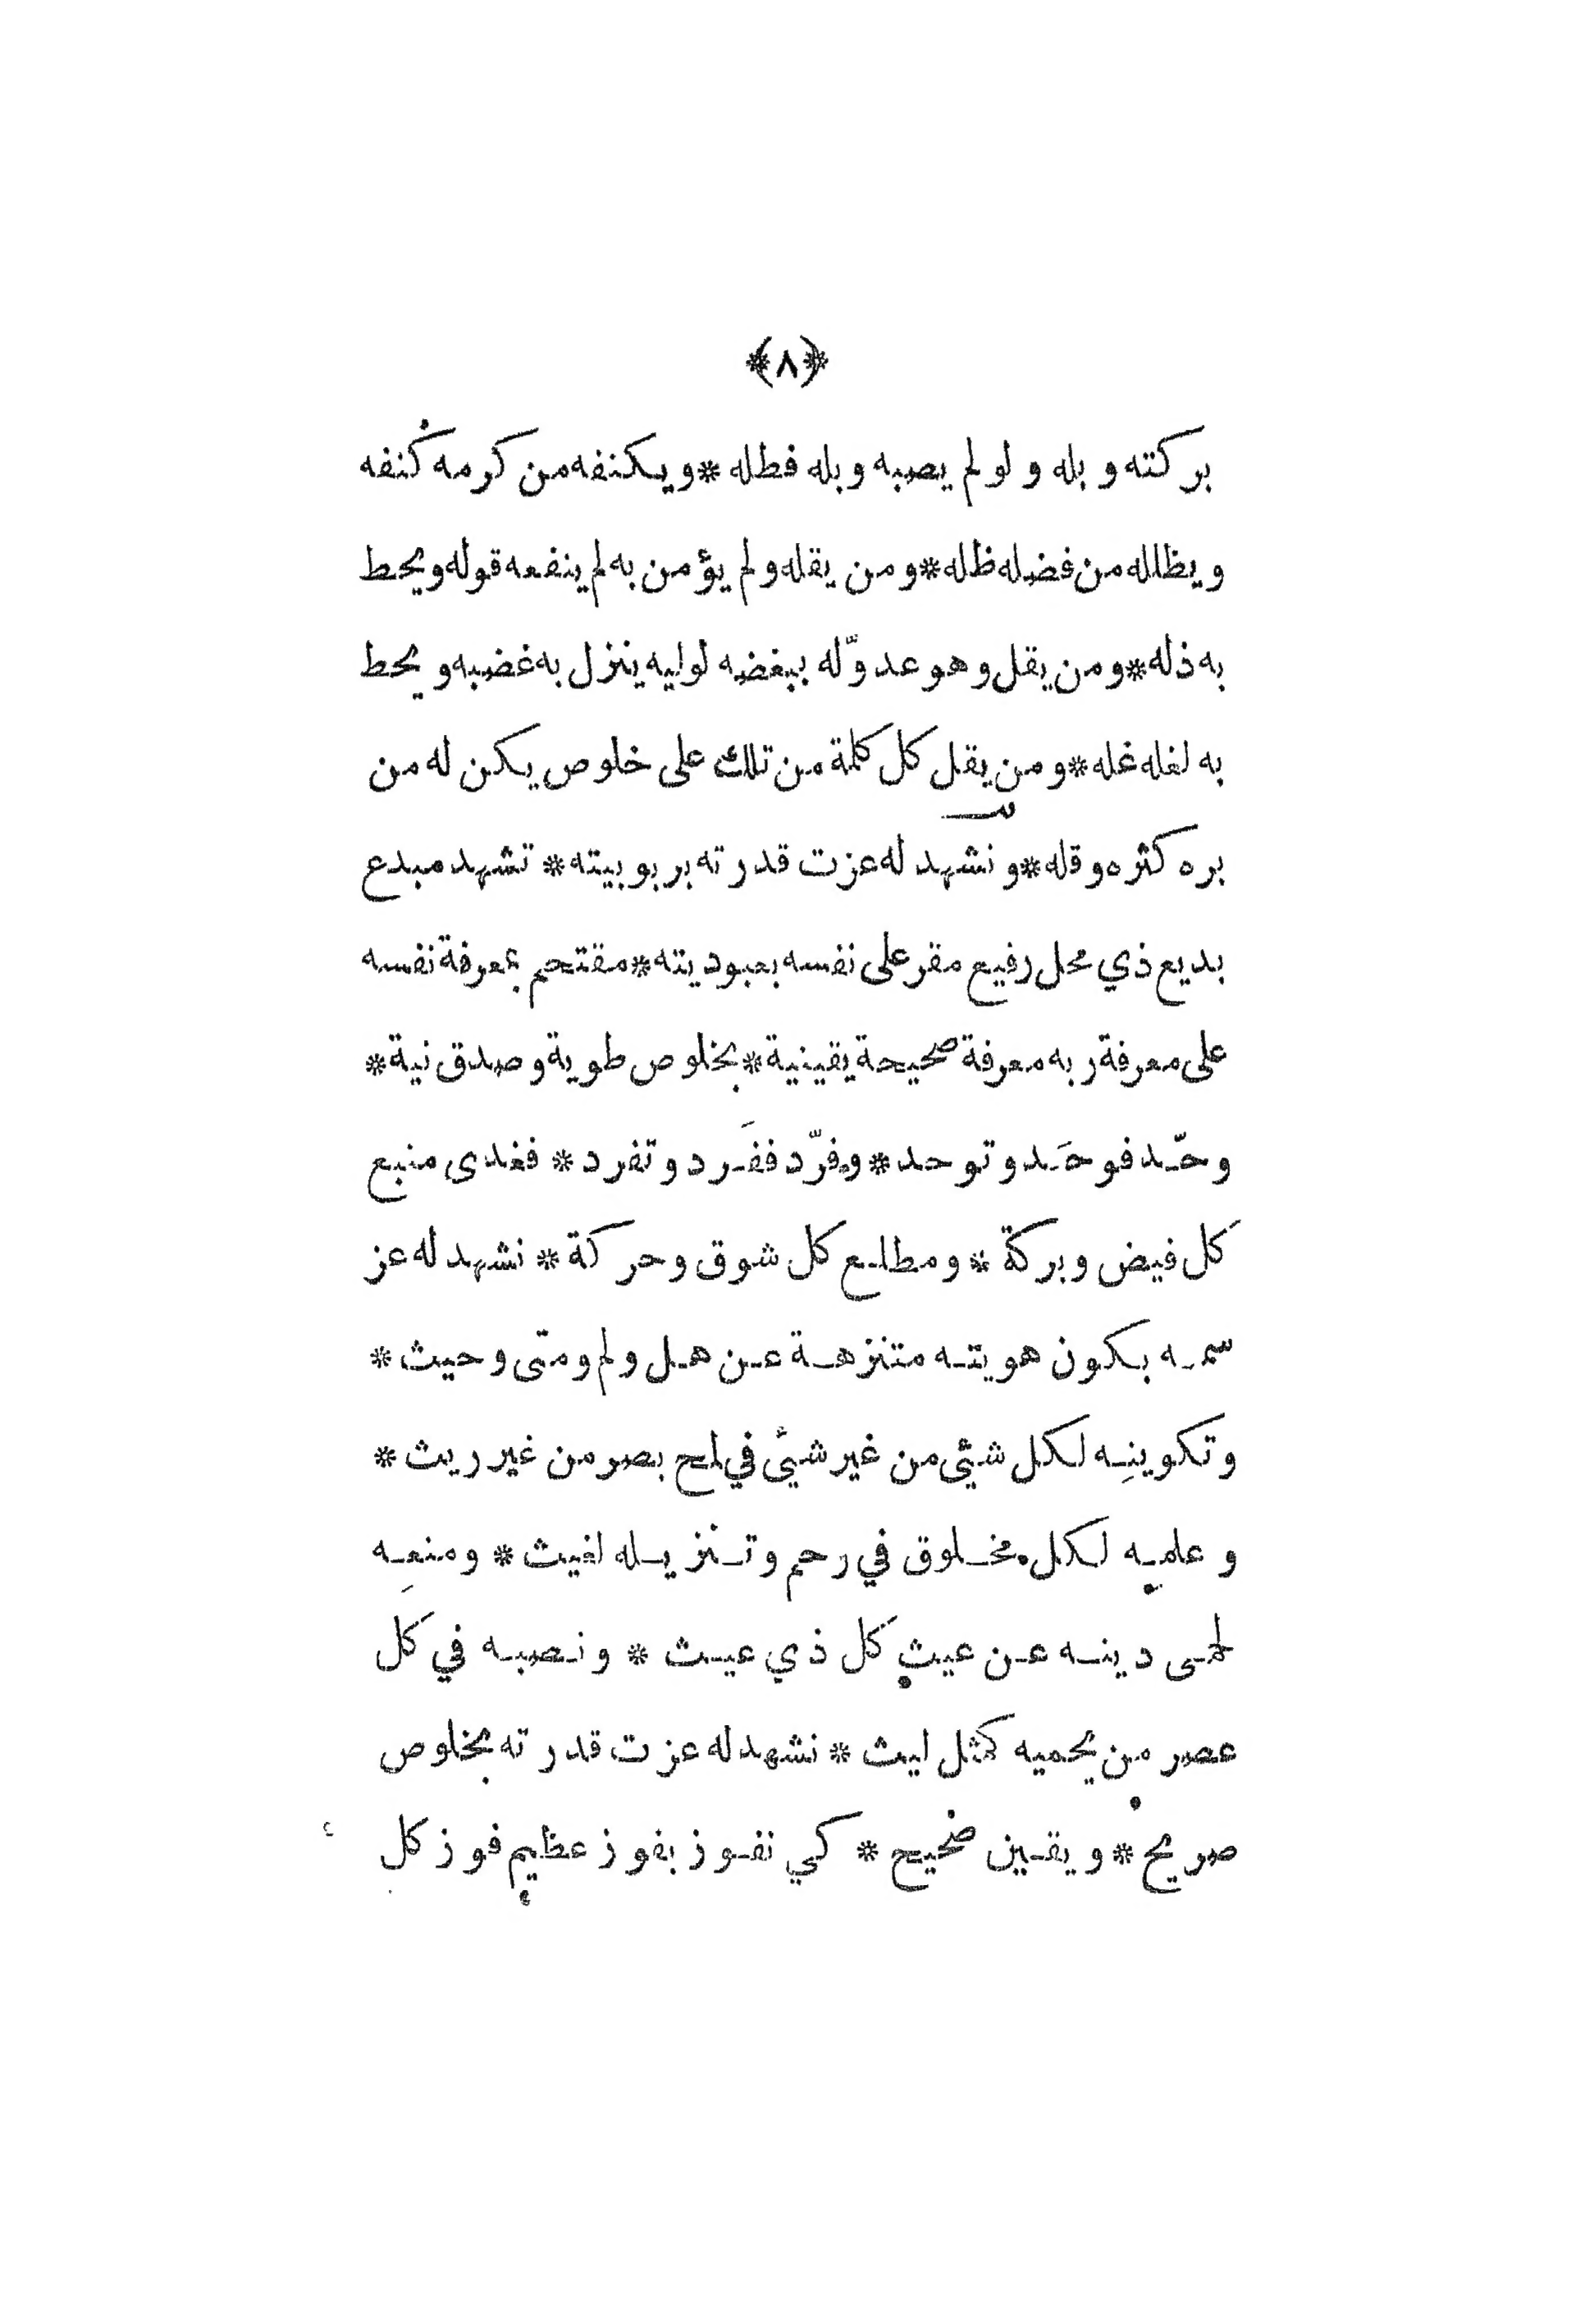 ﴿٨﴾
بركته وبله ولو لم يصبه وبله فطله * ويكنفه من كرمه كنفه
ويظلله من فضله ظله * ومن يقله ولم يؤمن به لم ينفعه قوله ويحط
به ذله * ومن يقل وهو عدوّ له ببغضه لوليه ينزل به غضبه ويحط
به لغله غله * ومن يقل كل كلمة من تلك على خلوص يكن له من
بره كثره وقله * ونشهد له عزت قدرته بربوبيته * تشهد مبدع
بديع ذي محل رفيع مقر على نفسه بعبوديته * مقتحم بمعرفة نفسه
على معرفة ربه معرفة صحيحة يقينية * بخلوص طوية وصدق نية *
وحّد فوحَد وتوحد * وفرّد ففَرد وتفرد * فغدى منبع
كل فيض وبركة * ومطلع كل شوق وحركة * نشهد له عز
سمه بكون هويته متنزهة عن هل ولم ومتى وحيث *
وتكوينِه لكل شيْئ من غير شيئ في لمح بصر من غير ريث *
وعلمِه لكل مخلوق في رحم وتنزيله لغيث * ومنعِه
لحمى دينه عن عيث كل ذي عيث * ونصبه في كل
عصر من يحميه كمثل ليث * نشهد له عزت قدرته بخلوص
صريح * ويقين صحيح * كي نفوز بفوز عظيم فوز كل